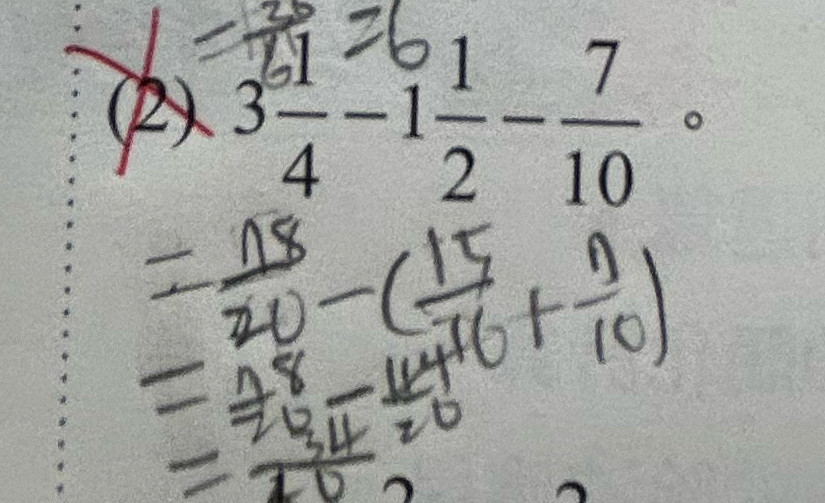 = 20/61 = 6
(2) 3 1/4 - 1 1/2 - 7/10 。
= 78/20 - (15/10 + 7/10)
= 78/20 - 44/20
= 34/20